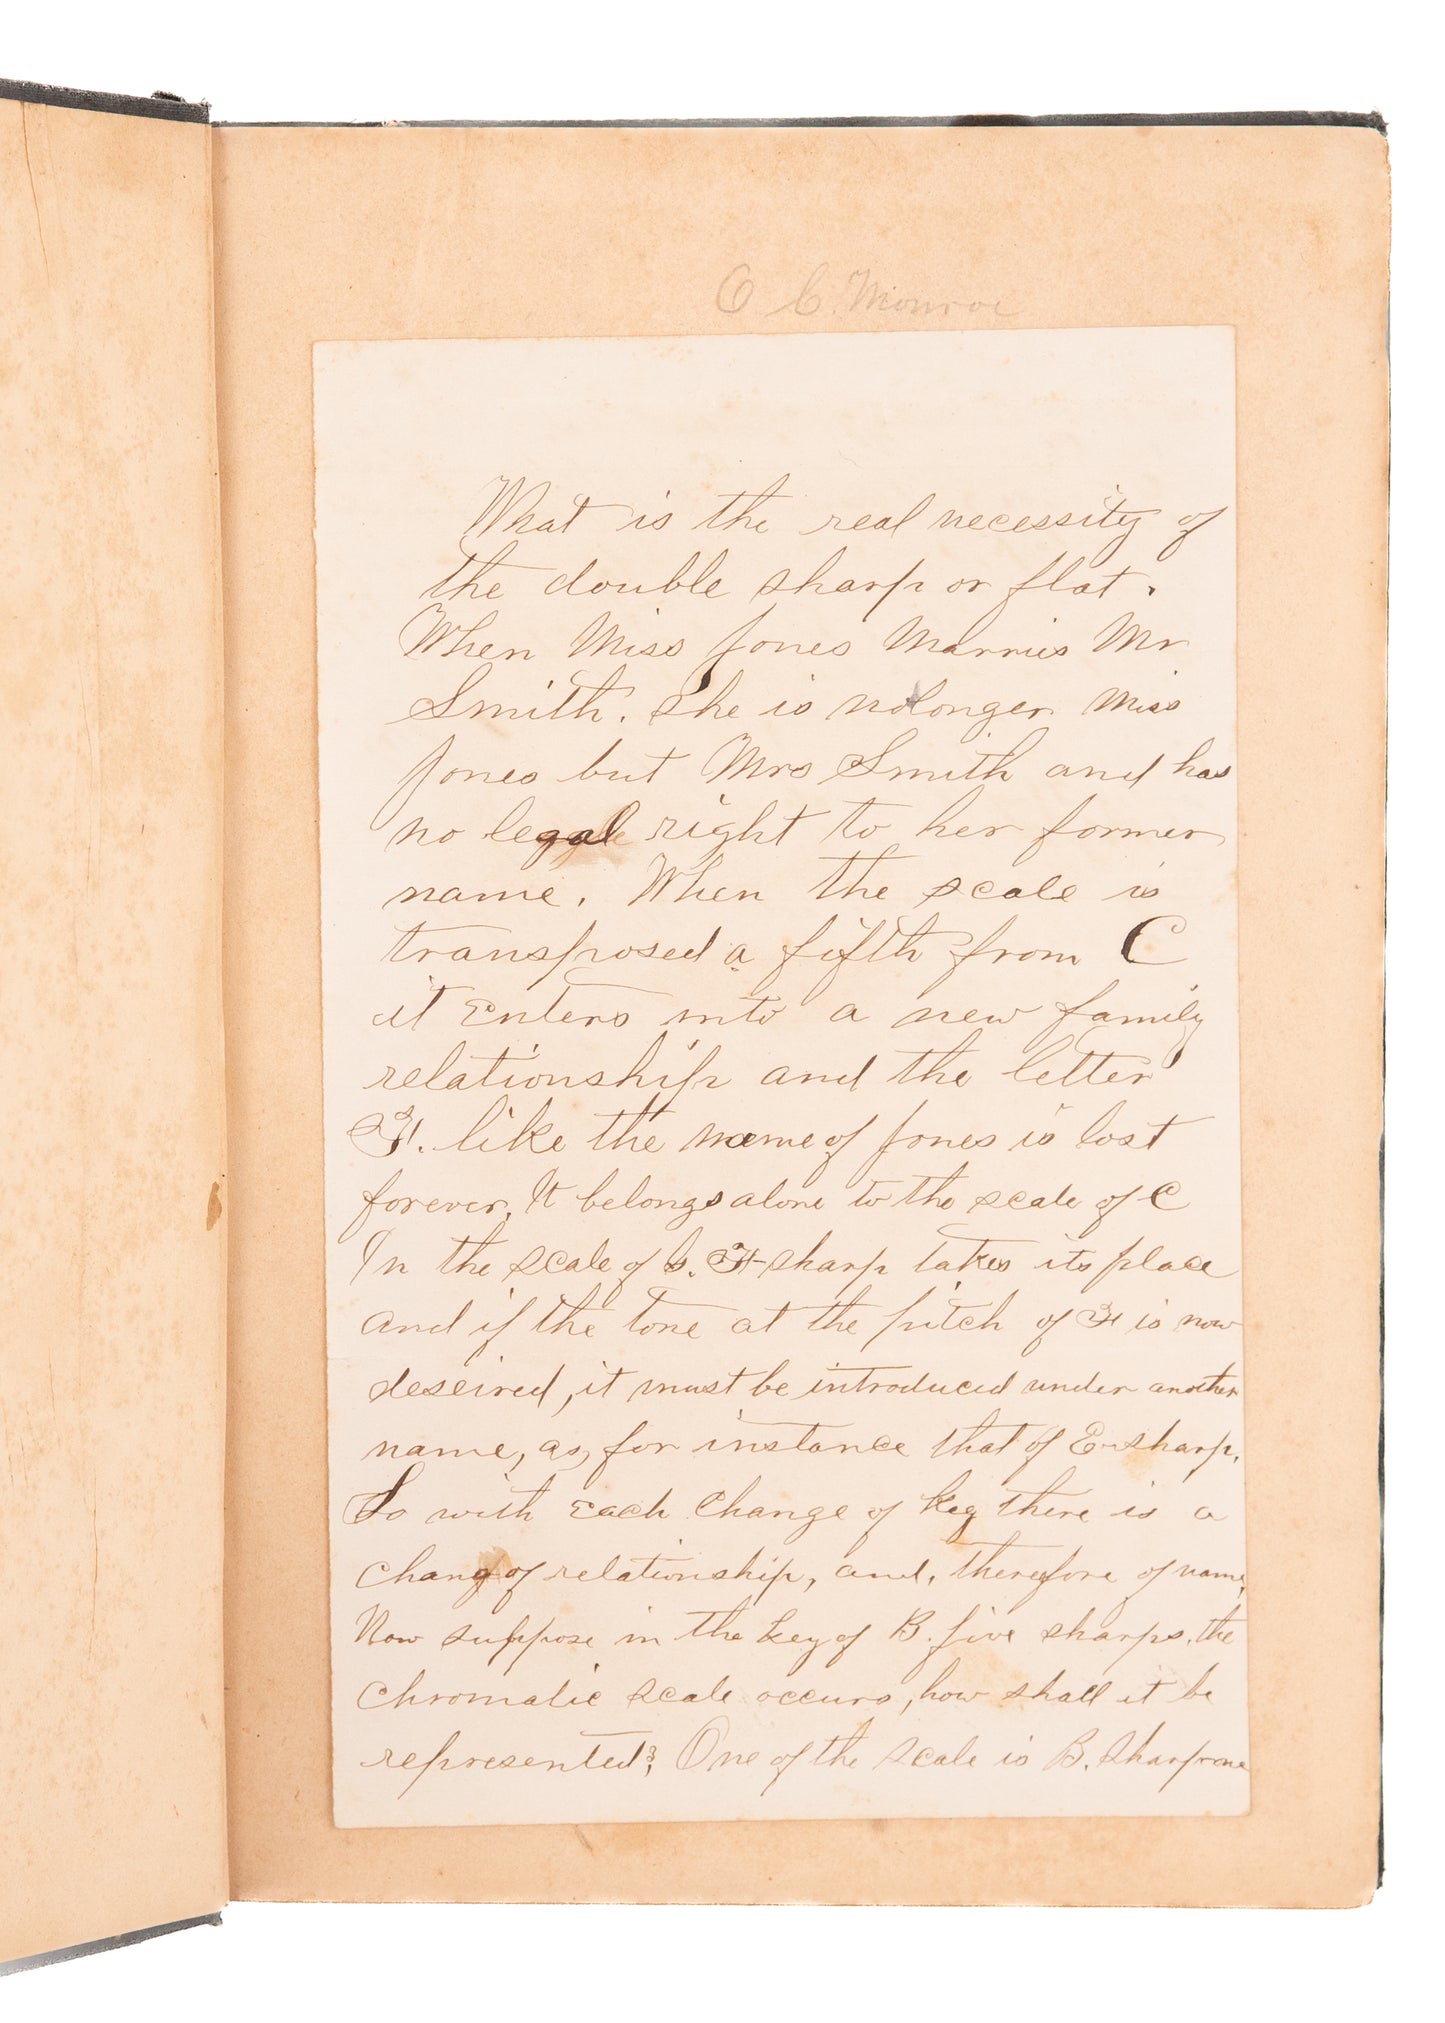 O C. Monroe
What is the real necessity of
the double sharp or flat.
When Miss Jones Marries Mr
Smith. She is no longer Miss
Jones but Mrs Smith and has
no legal right to her former
name. When the scale is
transposed a fifth from C
it Enters into a new family
relationship and the letter
F. like the name of Jones is lost
forever. It belongs alone to the scale of C
In the scale of G. F sharp takes its place
and if the tone at the pitch of F is now
deseired, it must be introduced under another
name, as, for instance that of E-sharp.
So with Each Change of Key there is a
chang of relationship, and, therefore of name,
Now suppose in the key of B. five sharps, the
Chromatic scale occurs, how shall it be
represented? One of the scale is B. sharp one